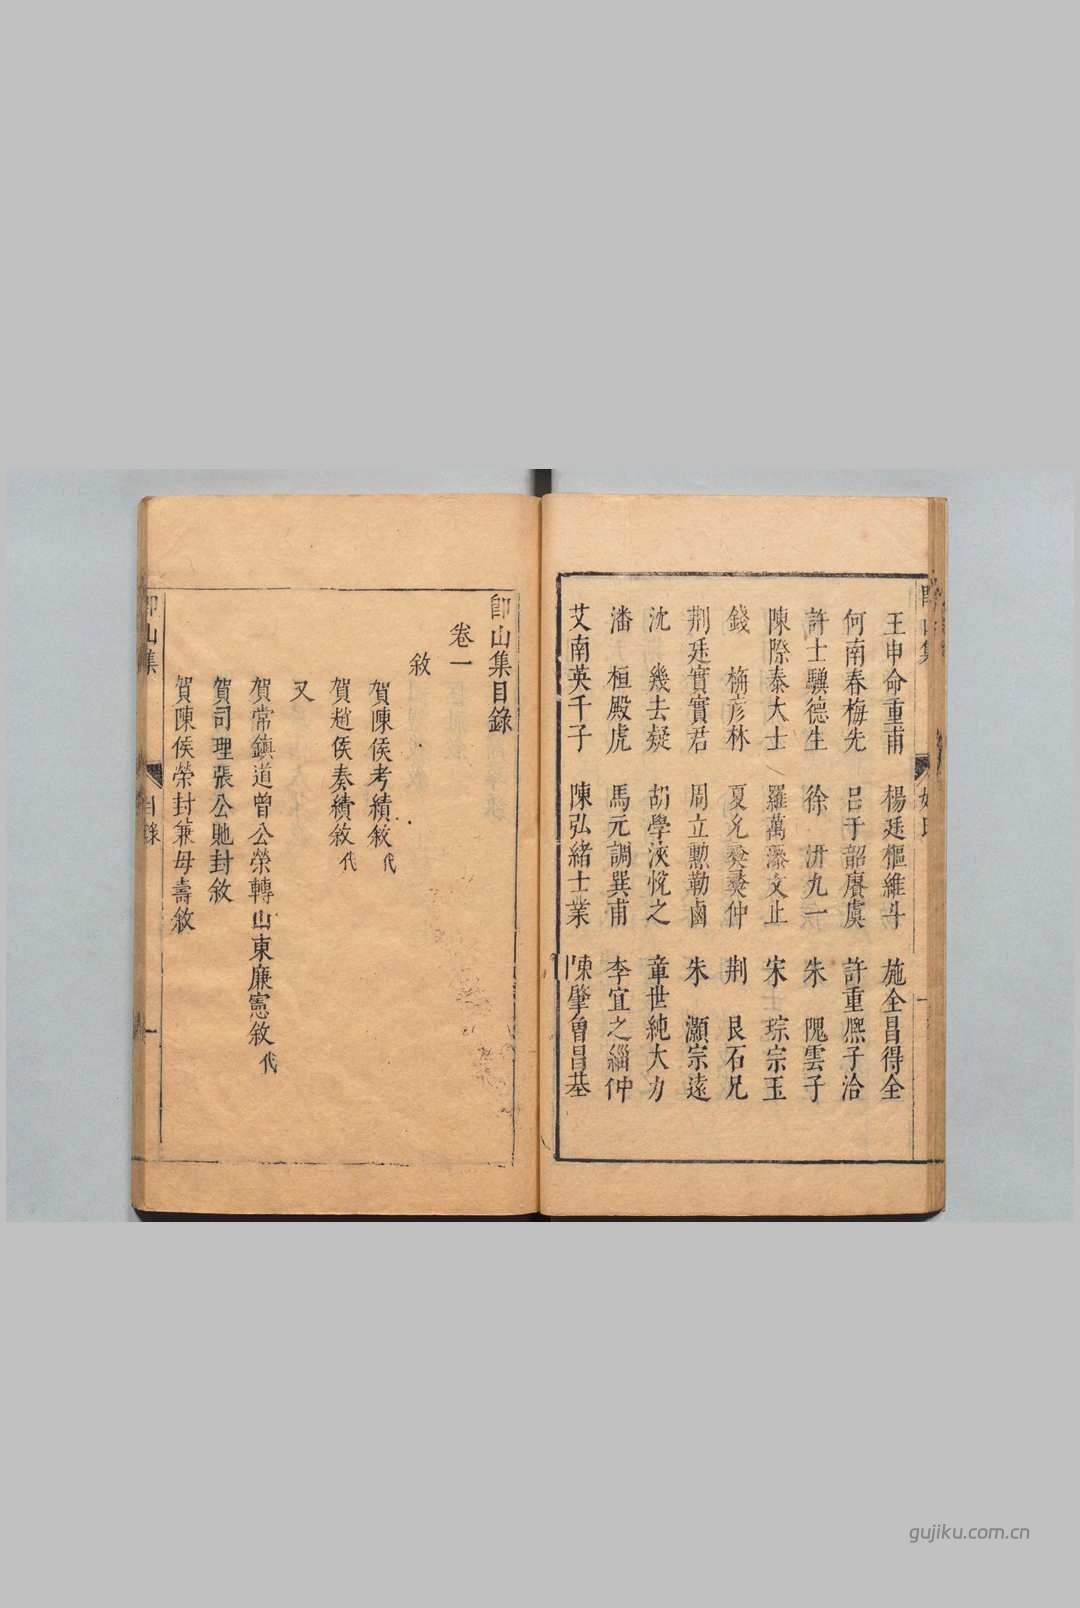 王申命重甫　楊廷樞維斗　施全昌得全
何南春梅先　呂于韶賡虞　許重熈子洽
許士驥德生　徐　汧九一　朱　隗雲子
陳際泰大士　羅萬藻文止　宋　琮宗玉
錢　栴彦林　夏允彝彝仲　荆　艮石兄
荆廷實實君　周立勲勒卣　朱　灝宗遠
沈　幾去疑　胡學浹悅之　章世純大力
潘　桓殿虎　馬元調巽甫　李宜之緇仲
艾南英千子　陳弘緒士業　陳肇曾昌基
卽山集目錄
卷一
敘
賀陳侯考績敘代
賀趙侯奏績敘代
又
賀常鎮道曾公榮轉山東廉憲敘代
賀司理張公貤封敘
賀陳侯榮封兼母壽敘
卽山集　目錄　一
gujiku.com.cn